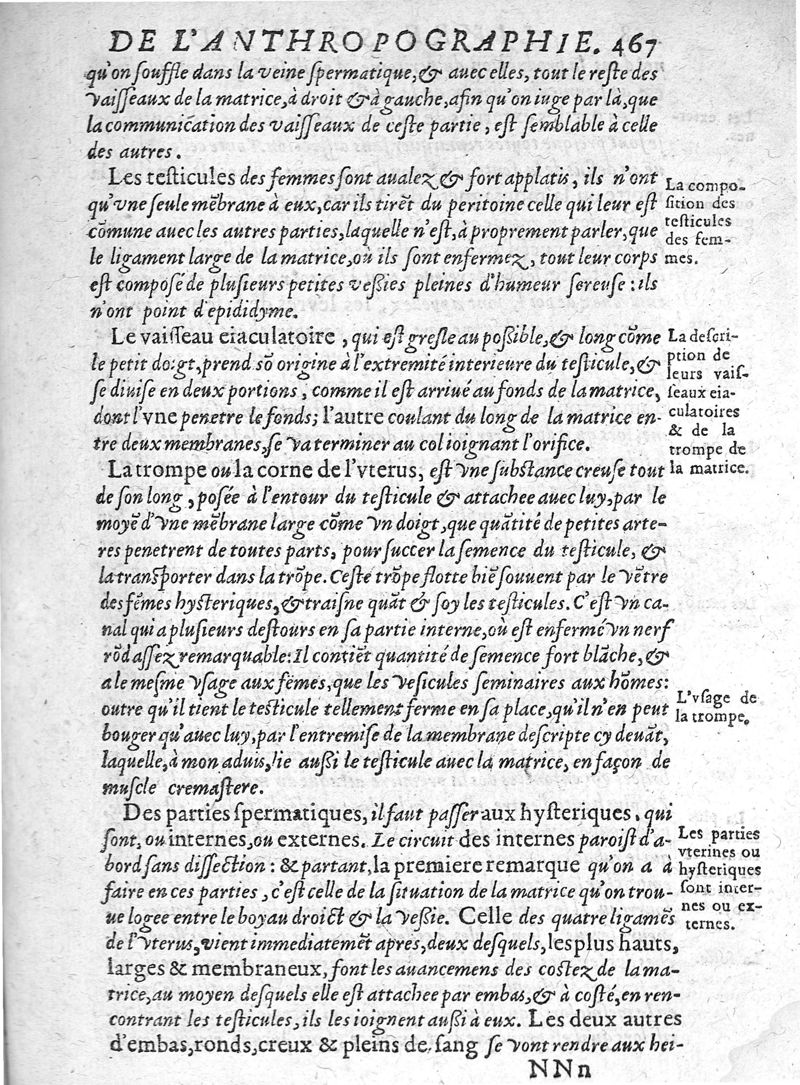 DE L'ANTHROPOGRAPHIE. 467
qu'on souffle dans la veine spermatique, & auec elles, tout le reste des
vaisseaux de la matrice, à droit & à gauche, afin qu'on iuge par là, que
la communication des vaisseaux de ceste partie, est semblable à celle
des autres.
Les testicules des femmes sont aualez & fort applatis, ils n'ont
qu'vne seule mẽbrane à eux, car ils tirẽt du peritoine celle qui leur est
cõmune auec les autres parties, laquelle n'est, à proprement parler, que
le ligament large de la matrice, où ils sont enfermez, tout leur corps
est composé de plusieurs petites vessies pleines d'humeur sereuse : ils
n'ont point d'epididyme.
La compo-
sition des
testicules
des fem-
mes.
Le vaisseau eiaculatoire, qui est gresle au possible, & long cõme
le petit doigt, prend sõ origine à l'extremité interieure du testicule, &
se diuise en deux portions, comme il est arriué au fonds de la matrice,
dont l'vne penetre le fonds; l'autre coulant du long de la matrice en-
tre deux membranes, se va terminer au col ioignant l'orifice.
La descri-
ption de
leurs vais-
seaux eia-
culatoires
& de la
trompe de
la matrice.
La trompe ou la corne de l'vterus, est vne substance creuse tout
de son long, posée à l'entour du testicule & attachee auec luy, par le
moyẽ d'vne mẽbrane large cõme vn doigt, que quãtité de petites arte-
res penetrent de toutes parts, pour succer la semence du testicule, &
la transporter dans la trõpe. Ceste trõpe flotte biẽ souuent par le vẽtre
des fẽmes hysteriques, & traisne quãt & soy les testicules. C'est vn ca-
nal qui a plusieurs destours en sa partie interne, où est enfermé vn nerf
rõd assez remarquable: Il contiẽt quantité de semence fort blãche, &
a le mesme vsage aux fẽmes, que les vesicules seminaires aux hõmes:
outre qu'il tient le testicule tellement ferme en sa place, qu'il n'en peut
bouger qu'auec luy, par l'entremise de la membrane descripte cy deuãt,
laquelle, à mon aduis, lie aussi le testicule auec la matrice, en façon de
muscle cremastere.
L'vsage de
la trompe.
Des parties spermatiques, il faut passer aux hysteriques, qui
sont, ou internes, ou externes. Le circuit des internes paroist d'a-
bord sans dissection : & partant, la premiere remarque qu'on a à
faire en ces parties, c'est celle de la situation de la matrice qu'on trou-
ue logee entre le boyau droict & la vessie. Celle des quatre ligamẽs
de l'vterus, vient immediatemẽt apres, deux desquels, les plus hauts,
larges & membraneux, font les auancemens des costez de la ma-
trice, au moyen desquels elle est attachee par embas, & à costé, en ren-
contrant les testicules, ils les ioignent aussi à eux. Les deux autres
d'embas, ronds, creux & pleins de sang se vont rendre aux hei-
Les parties
vterines ou
hysteriques
sont inter-
nes ou ex-
ternes.
NNn